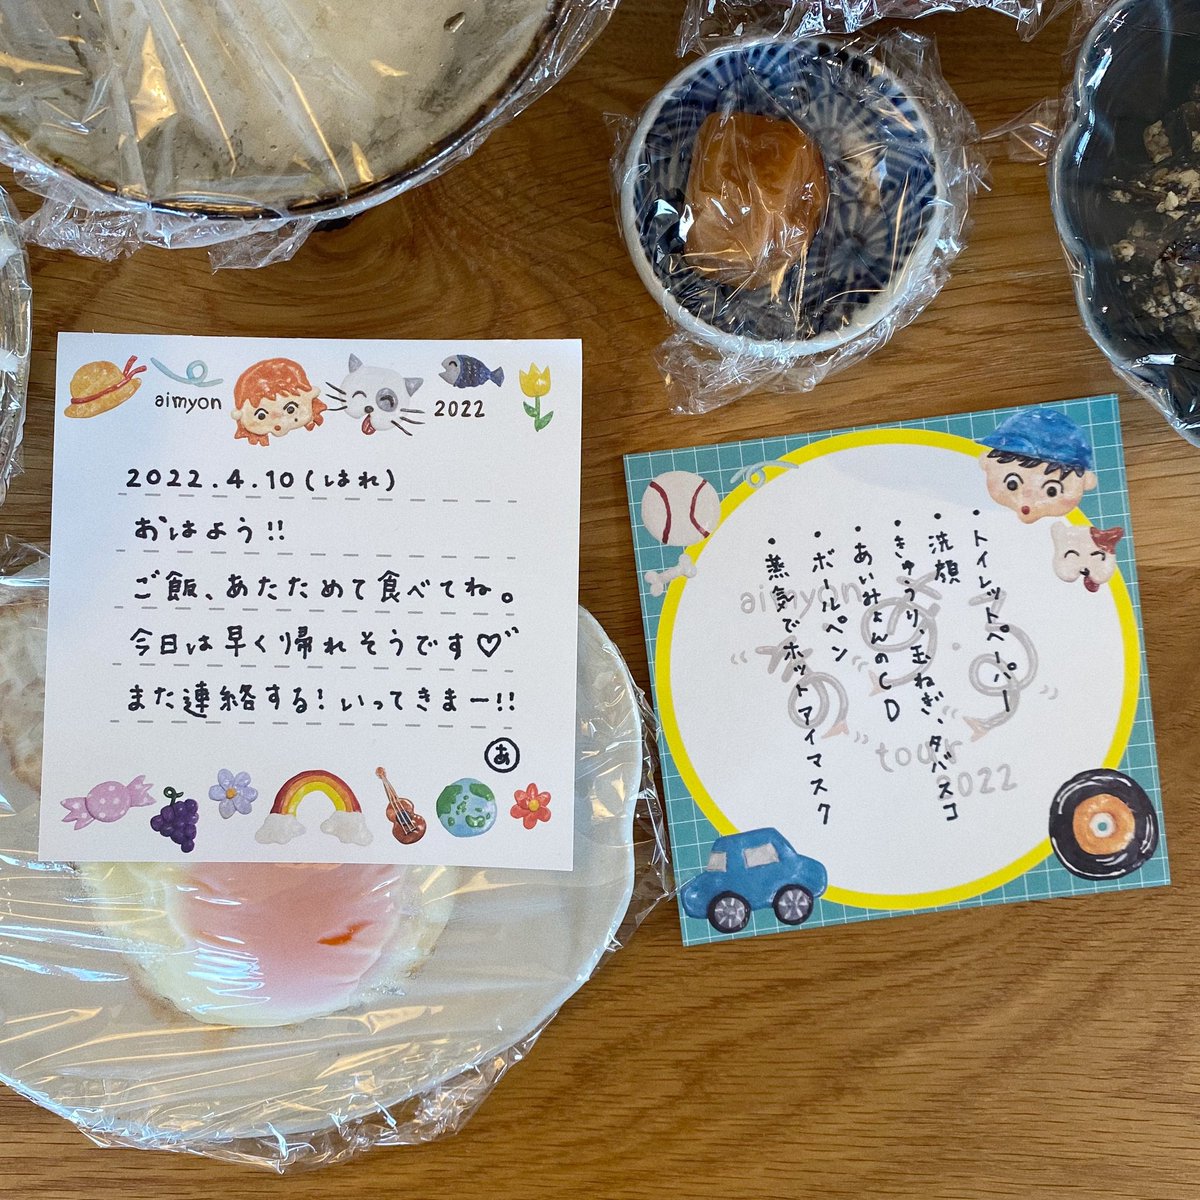 aimyon
2022
2022.4.10(はれ)
おはよう!!
ご飯、あたためて食べてね。
今日は早く帰れそうです♡"
また連絡する!いってきまー!!
あ
・トイレットペーパー
・洗顔
・きゅうり、玉ねぎ、タバスコ
・あいみょんのCD
・ボールペン
・蒸気でホットアイマスク
aimyon
tour
2022